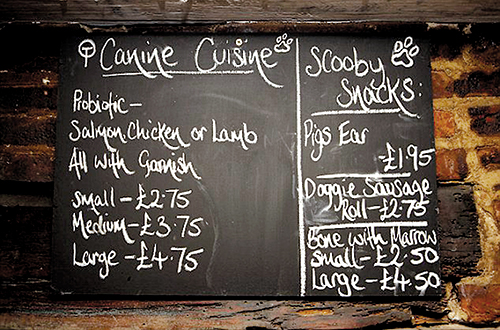 Canine Cuisine
Probiotic –
Salmon, Chicken or Lamb
All with Garnish
Small – £2.75
Medium – £3.75
Large – £4.75
Scooby
Snacks:
Pigs Ear
– £1.95
Doggie Sausage
Roll – £2.75
Bone with Marrow
Small – £2.50
Large – £4.50